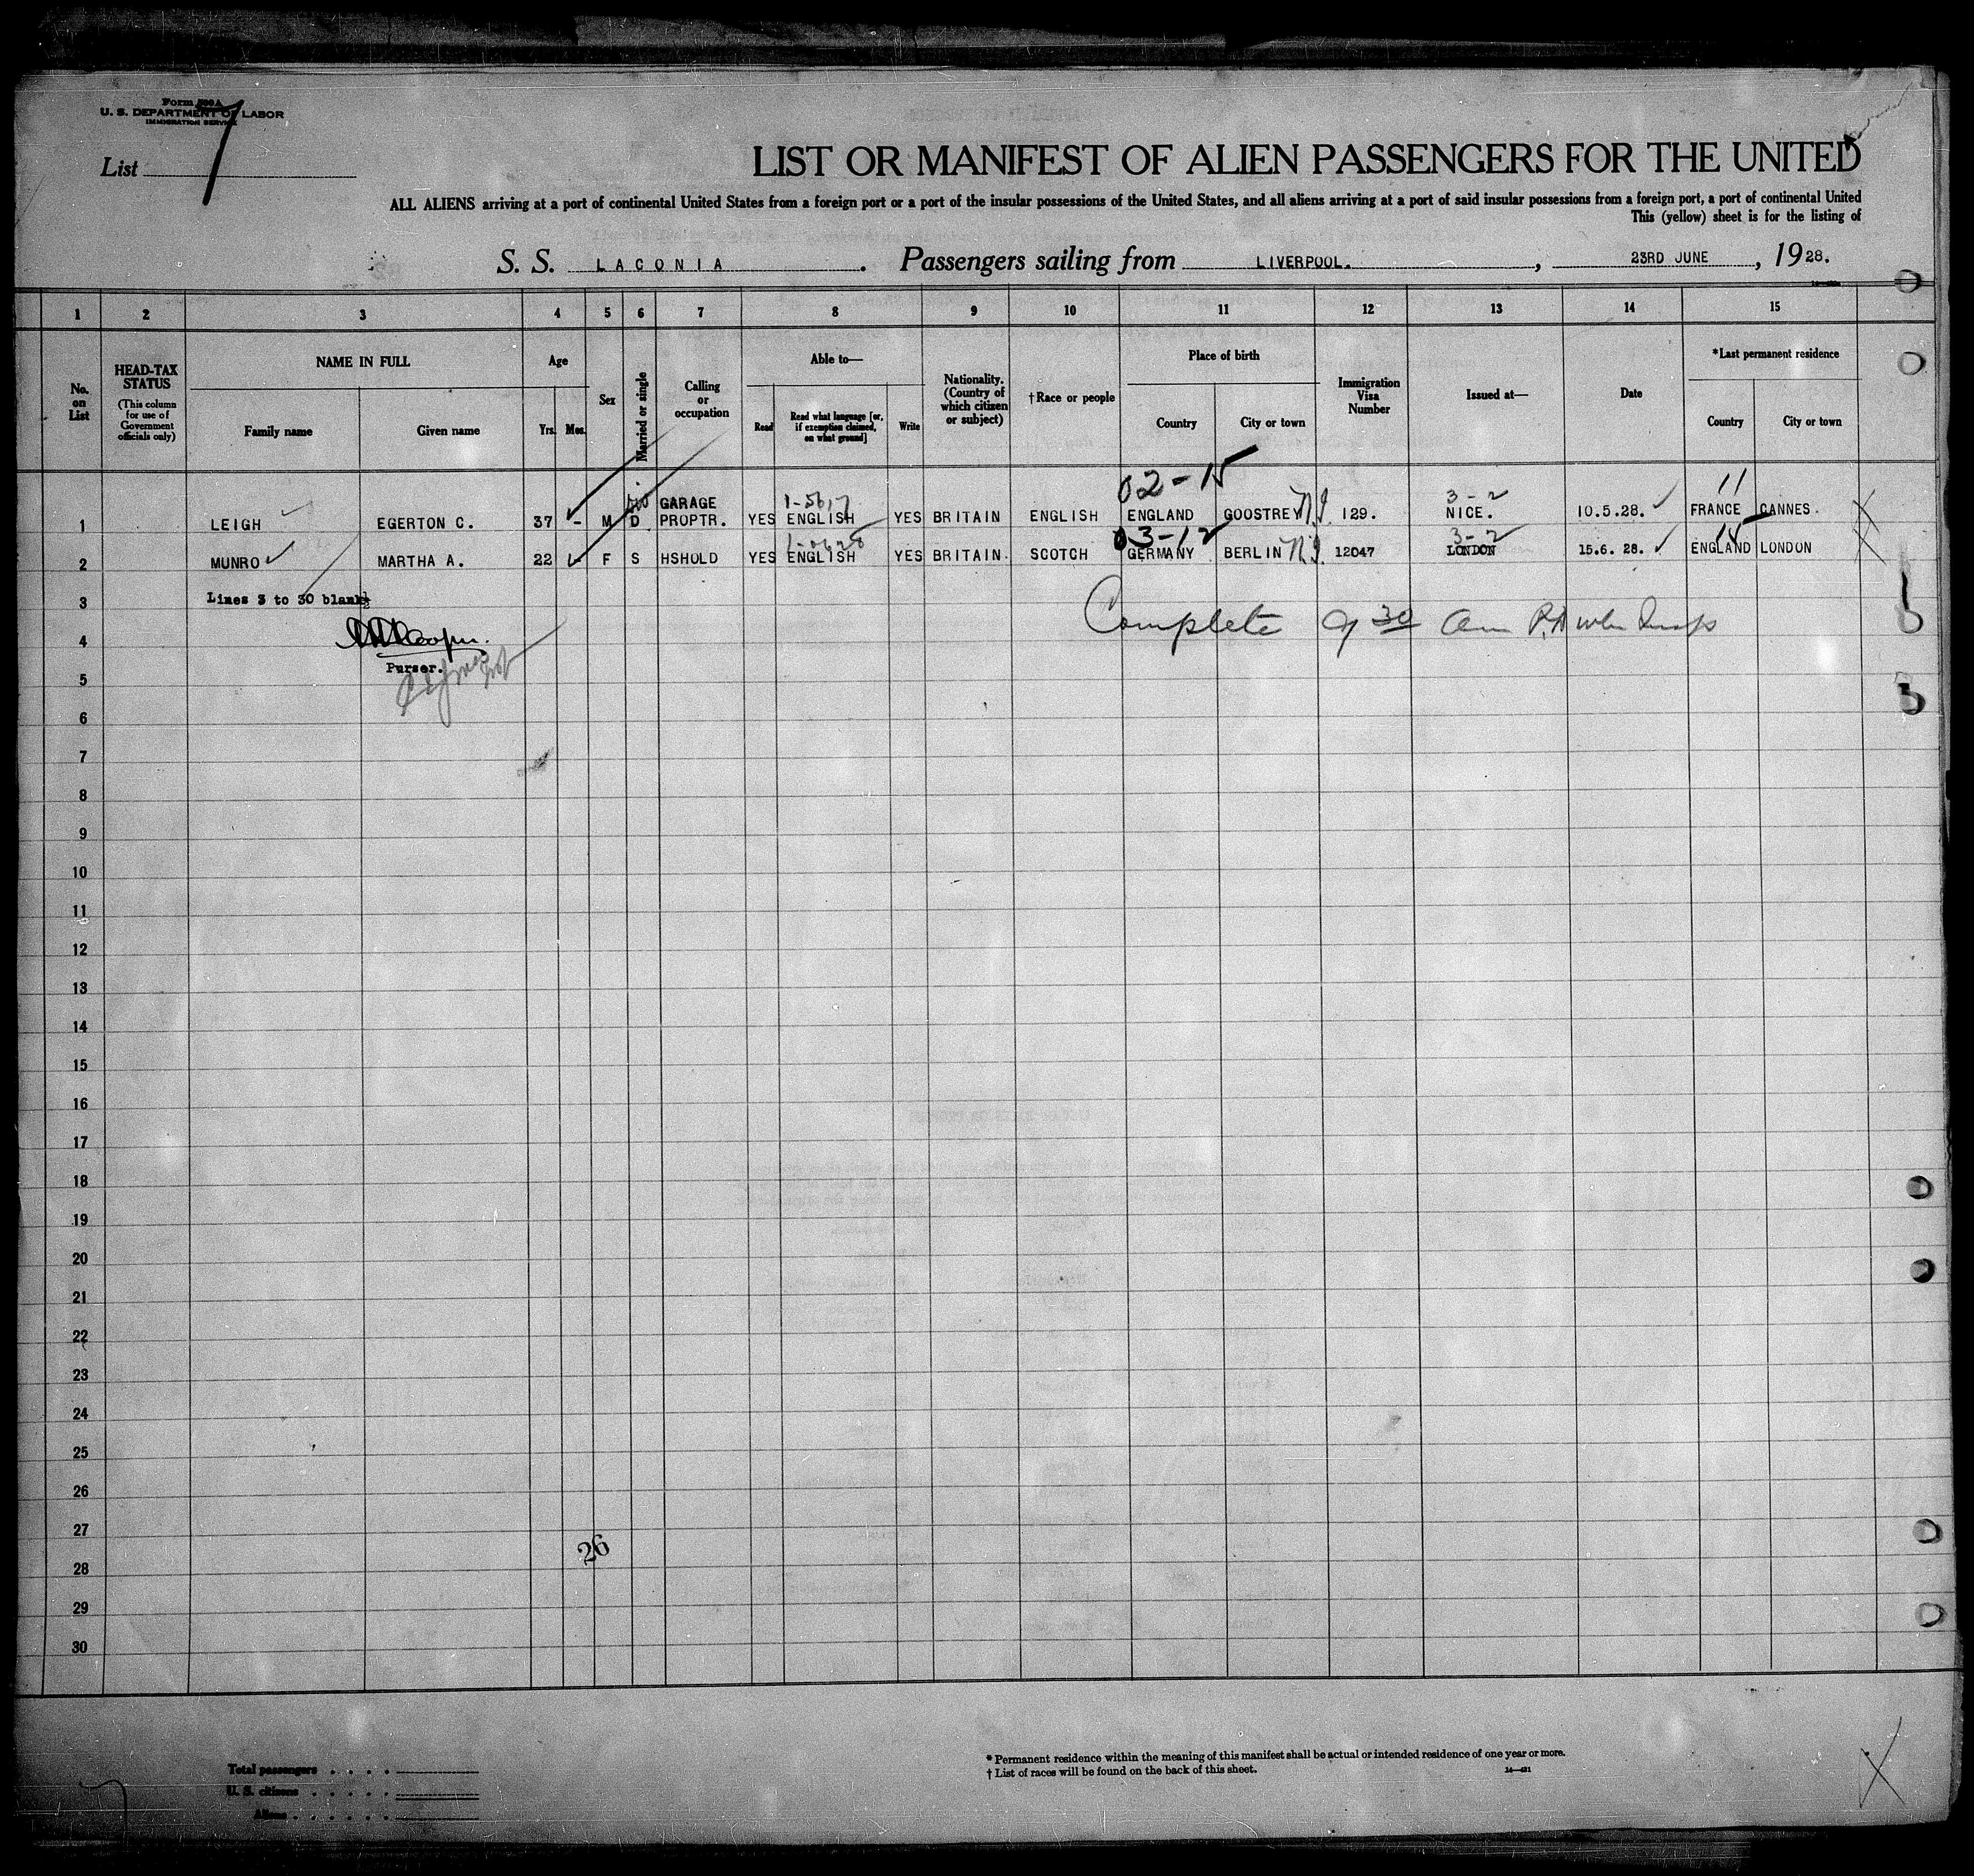 Form 500 A
U. S. DEPARTMENT OF LABOR
IMMIGRATION SERVICE
List 7
LIST OR MANIFEST OF ALIEN PASSENGERS FOR THE UNITED
ALL ALIENS arriving at a port of continental United States from a foreign port or a port of the insular possessions of the United States, and all aliens arriving at a port of said insular possessions from a foreign port, a port of continental United
This (yellow) sheet is for the listing of
S. S. LACONIA. Passengers sailing from LIVERPOOL., 23RD JUNE, 1928.
1 2 3 4 5 6 7 8 9 10 11 12 13 14 15
No. on List
HEAD-TAX STATUS
(This column for use of Government officials only)
NAME IN FULL
Family name Given name
Age
Yrs. Mos.
Sex
Married or single
Calling or occupation
Able to—
Read
Read what language [or, if exemption claimed, on what ground]
Write
Nationality. (Country of which citizen or subject)
†Race or people
Place of birth
Country City or town
Immigration Visa Number
Issued at—
Date
*Last permanent residence
Country City or town
02-15 11
1-5617 3-2
1 LEIGH EGERTON C. 37 - M D GARAGE PROPTR. YES ENGLISH YES BRITAIN ENGLISH ENGLAND GOOSTREY 129. NICE. 10.5.28. FRANCE CANNES.
03-12 3-2
2 MUNRO MARTHA A. 22 F S HSHOLD YES ENGLISH YES BRITAIN. SCOTCH GERMANY BERLIN 12047 LONDON 15.6. 28. ENGLAND LONDON
3 Lines 3 to 30 blank
Complete 9 30 am
4
Purser.
5
6
7
8
9
10
11
12
13
14
15
16
17
18
19
20
21
22
23
24
25
26
27
26
28
29
30
* Permanent residence within the meaning of this manifest shall be actual or intended residence of one year or more.
† List of races will be found on the back of this sheet.
Total passengers . . . .
U. S. citizens . . . . .
Aliens . . . . . .